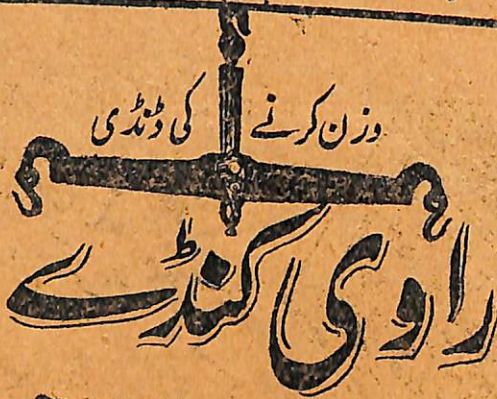 وزن کرنے کی ڈنڈی
راوی کنڈے